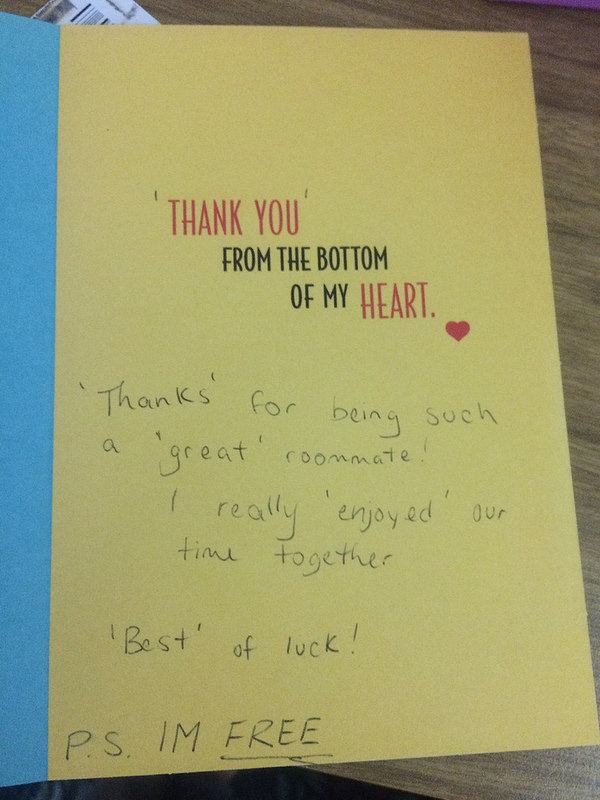 'THANK YOU'
FROM THE BOTTOM
OF MY HEART.
'Thanks' for being such
a 'great' roommate!
I really 'enjoyed' our
time together
'Best' of luck!
P.S. IM FREE